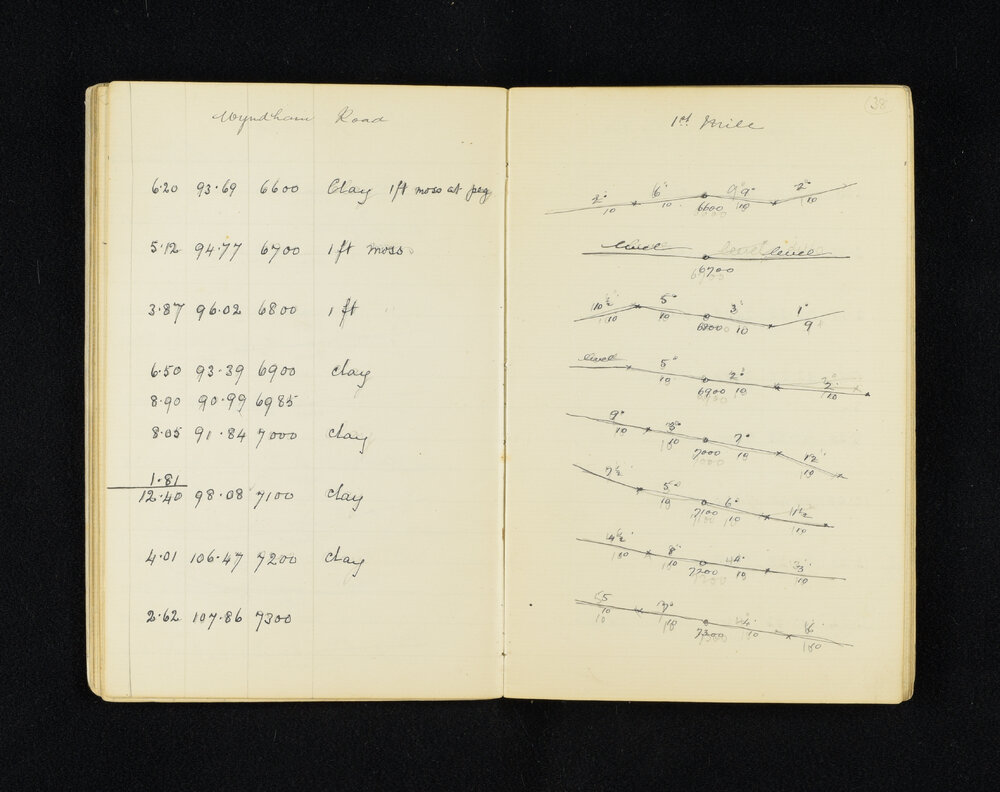 Wyndham Road
6.20 93.69 6600 Clay 1ft moss at peg
5.12 94.77 6700 1 ft moss
3.87 96.02 6800 1 ft
6.50 93.39 6900 clay
8.90 90.99 6985
8.05 91.84 7000 clay
1.81
12.40 98.08 7100 clay
4.01 106.47 7200 clay
2.62 107.86 7300
38
1st Mile
2° 6° 9° 2°
10 10 6600 10 10
level level
6700
10½° 5° 3° 1°
10 10 6800 10 9
level 5° 2° 2°
10 6900 10 10
9° 7°
10 10 7000 10
7½° 5° 6° 11½
10 7100 10 10
4½° 8° 4° 3°
10 10 7200 10 10
7° 4°
10 10 7300 10 10